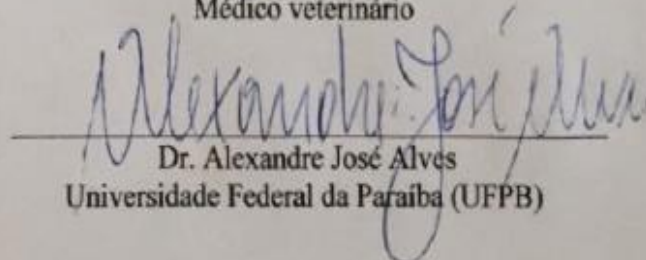 Médico veterinário
Alexandre José Alves
Dr. Alexandre José Alves
Universidade Federal da Paraíba (UFPB)